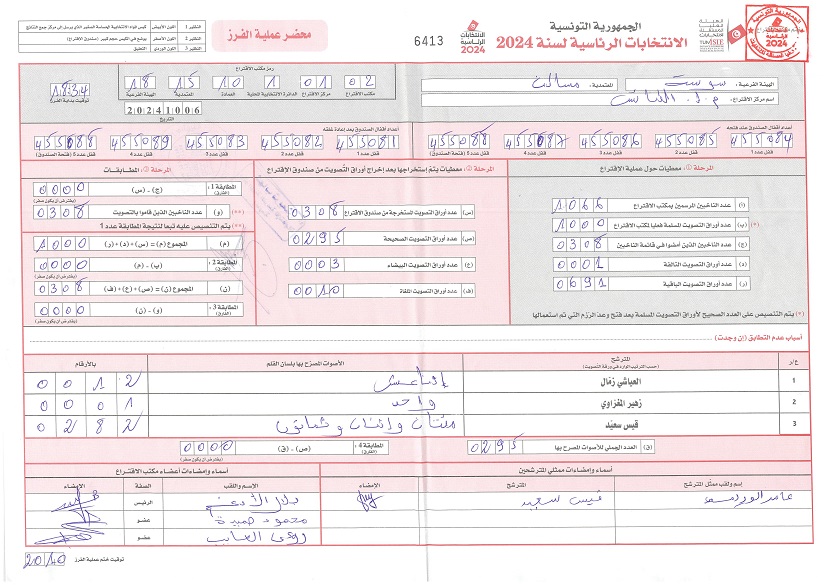 الجمهورية التونسية
الانتخابات الرئاسية لسنة 2024
6413
محضر عملية الفرز
الهيئة الفرعية: سوسة المعتمدية: مساكن
اسم مركز الاقتراع:
رمز مكتب الاقتراع
02 01 10 15 18
مكتب الاقتراع مركز الاقتراع الدائرة الانتخابية المحلية العمادة المعتمدية الهيئة الفرعية
20241006
التاريخ
18:34
توقيت بداية الفرز
أعداد أقفال الصندوق عند فتحه
455084 455085 455086 455087 455088
قفل عدد 1 قفل عدد 2 قفل عدد 3 قفل عدد 4 قفل عدد 5 (فتحة الصندوق)
أعداد أقفال الصندوق بعد إعادة غلقه
455081 455082 455083 455089 455085
قفل عدد 1 قفل عدد 2 قفل عدد 3 قفل عدد 4 قفل عدد 5 (فتحة الصندوق)
المرحلة 1: معطيات حول عملية الاقتراع
(أ) عدد الناخبين المرسمين بمكتب الاقتراع 1066
(ب) عدد أوراق التصويت المسلمة فعليا لمكتب الاقتراع 1000 (*)
(ج) عدد الناخبين الذين أمضوا في قائمة الناخبين 0308
(د) عدد أوراق التصويت التالفة 0001
(ر) عدد أوراق التصويت الباقية 0691
(*) يتم التنصيص على العدد الصحيح لأوراق التصويت المسلمة بعد فتح وعد الرزم التي تم استعمالها
المرحلة 2: معطيات يتم إستخراجها بعد إخراج أوراق التصويت من صندوق الاقتراع
(س) عدد أوراق التصويت المستخرجة من صندوق الاقتراع 0308
(ص) عدد أوراق التصويت الصحيحة 0295
(ع) عدد أوراق التصويت البيضاء 0003
(ف) عدد أوراق التصويت الملغاة 0010
المرحلة 3: المطابقات
المطابقة 1: (الفارق) (ج) - (س) 0000
(يفترض أن يكون صفر)
(**) (و) عدد الناخبين الذين قاموا بالتصويت 0308
(**) يتم التنصيص عليه تبعا لنتيجة المطابقة عدد 1
(م) المجموع (م) = (س) + (د) + (ر) 1000
المطابقة 2: (الفارق) (ب) - (م) 0000
(يفترض أن يكون صفر)
(ن) المجموع (ن) = (ص) + (ع) + (ف) 0308
المطابقة 3: (الفارق) (و) - (ن) 0000
(يفترض أن يكون صفر)
أسباب عدم التطابق (إن وجدت)
ع/ر المترشح الأصوات المصرح بها بلسان القلم بالأرقام
(حسب الترتيب الوارد في ورقة التصويت)
1 العياشي زمال إثنا عشر 0012
2 زهير المغزاوي واحد 0001
3 قيس سعيّد مئتان واثنان وثمانون 0282
(ق) العدد الجملي للأصوات المصرح بها 0295
المطابقة 4: (الفارق) (ص) - (ق) 0000
(يفترض أن يكون صفر)
أسماء وإمضاءات ممثلي المترشحين
إسم ولقب ممثل المترشح المترشح الإمضاء
قيس سعيد
أسماء وإمضاءات أعضاء مكتب الاقتراع
الإسم واللقب الصفة الإمضاء
الرئيس
عضو
عضو
توقيت ختم عملية الفرز 20:40